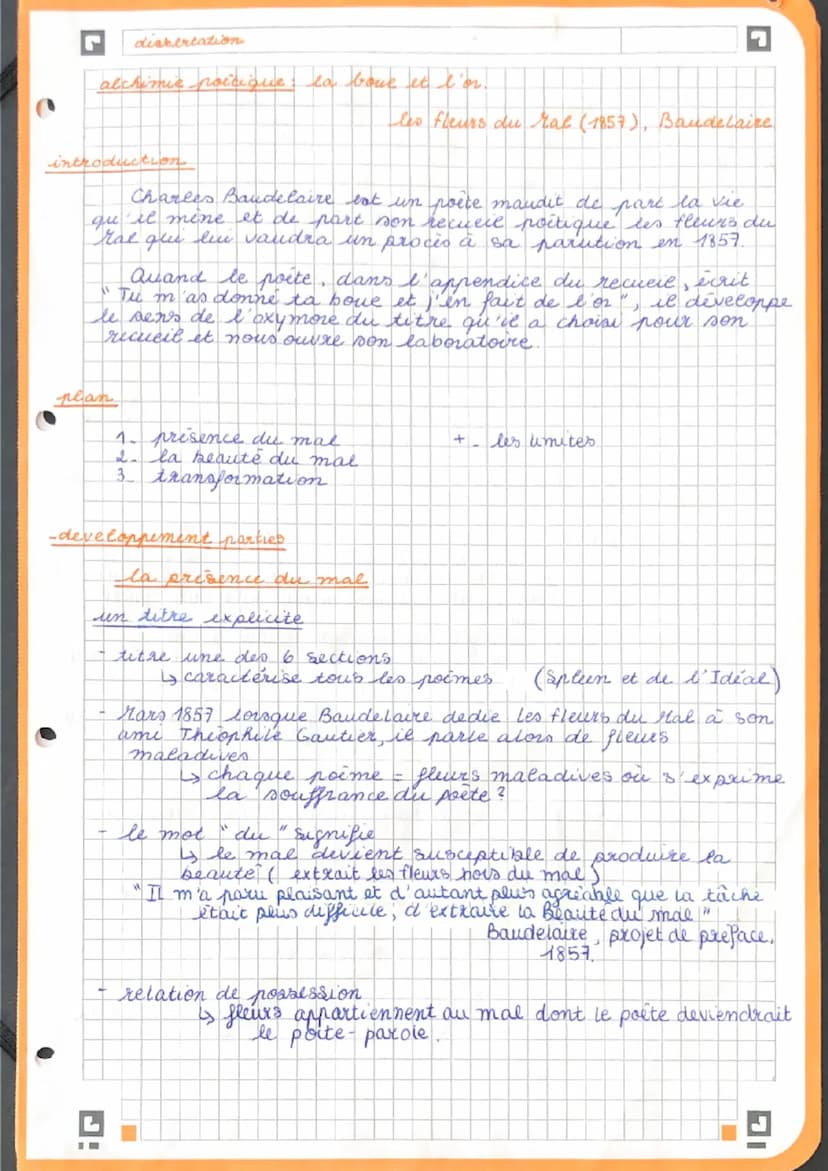 dissertation
alchimie poétique : la boue et l'or.
les fleurs du Mal (1857), Baudelaire
introduction
Charles Baudelaire est un poète maudit de part la vie
qu'il mène et de part son recueil poétique les fleurs du
Mal qui lui vaudra un procès à sa parution en 1857.
Quand le poète, dans l'appendice du recueil, écrit
"Tu m'as donné ta boue et j'en fait de l'or", il développe
le sens de l'oxymore du titre qu'il a choisi pour son
recueil et nous ouvre son laboratoire.
plan
1- présence du mal + - les limites
2- la beauté du mal
3- transformation
-developpement parties
la présence du mal
un titre explicite
- titre une des 6 sections
↳ caractérise tous les poèmes (Spleen et de l'Idéal)
- Mars 1857 lorsque Baudelaire dedie les fleurs du Mal à son
ami Théophile Gautier, il parle alors de fleurs
maladives
↳ chaque poème = fleurs maladives où s'exprime
la souffrance du poète ?
- le mot "du" signifie
↳ le mal devient susceptible de produire la
beauté ( extrait les fleurs hors du mal)
"Il m'a paru plaisant et d'autant plus agréable que la tâche
était plus difficile, d'extraire la Beauté du mal"
Baudelaire, projet de preface,
1857.
- relation de possession
↳ fleurs appartiennent au mal dont le poète deviendrait
le porte-parole.